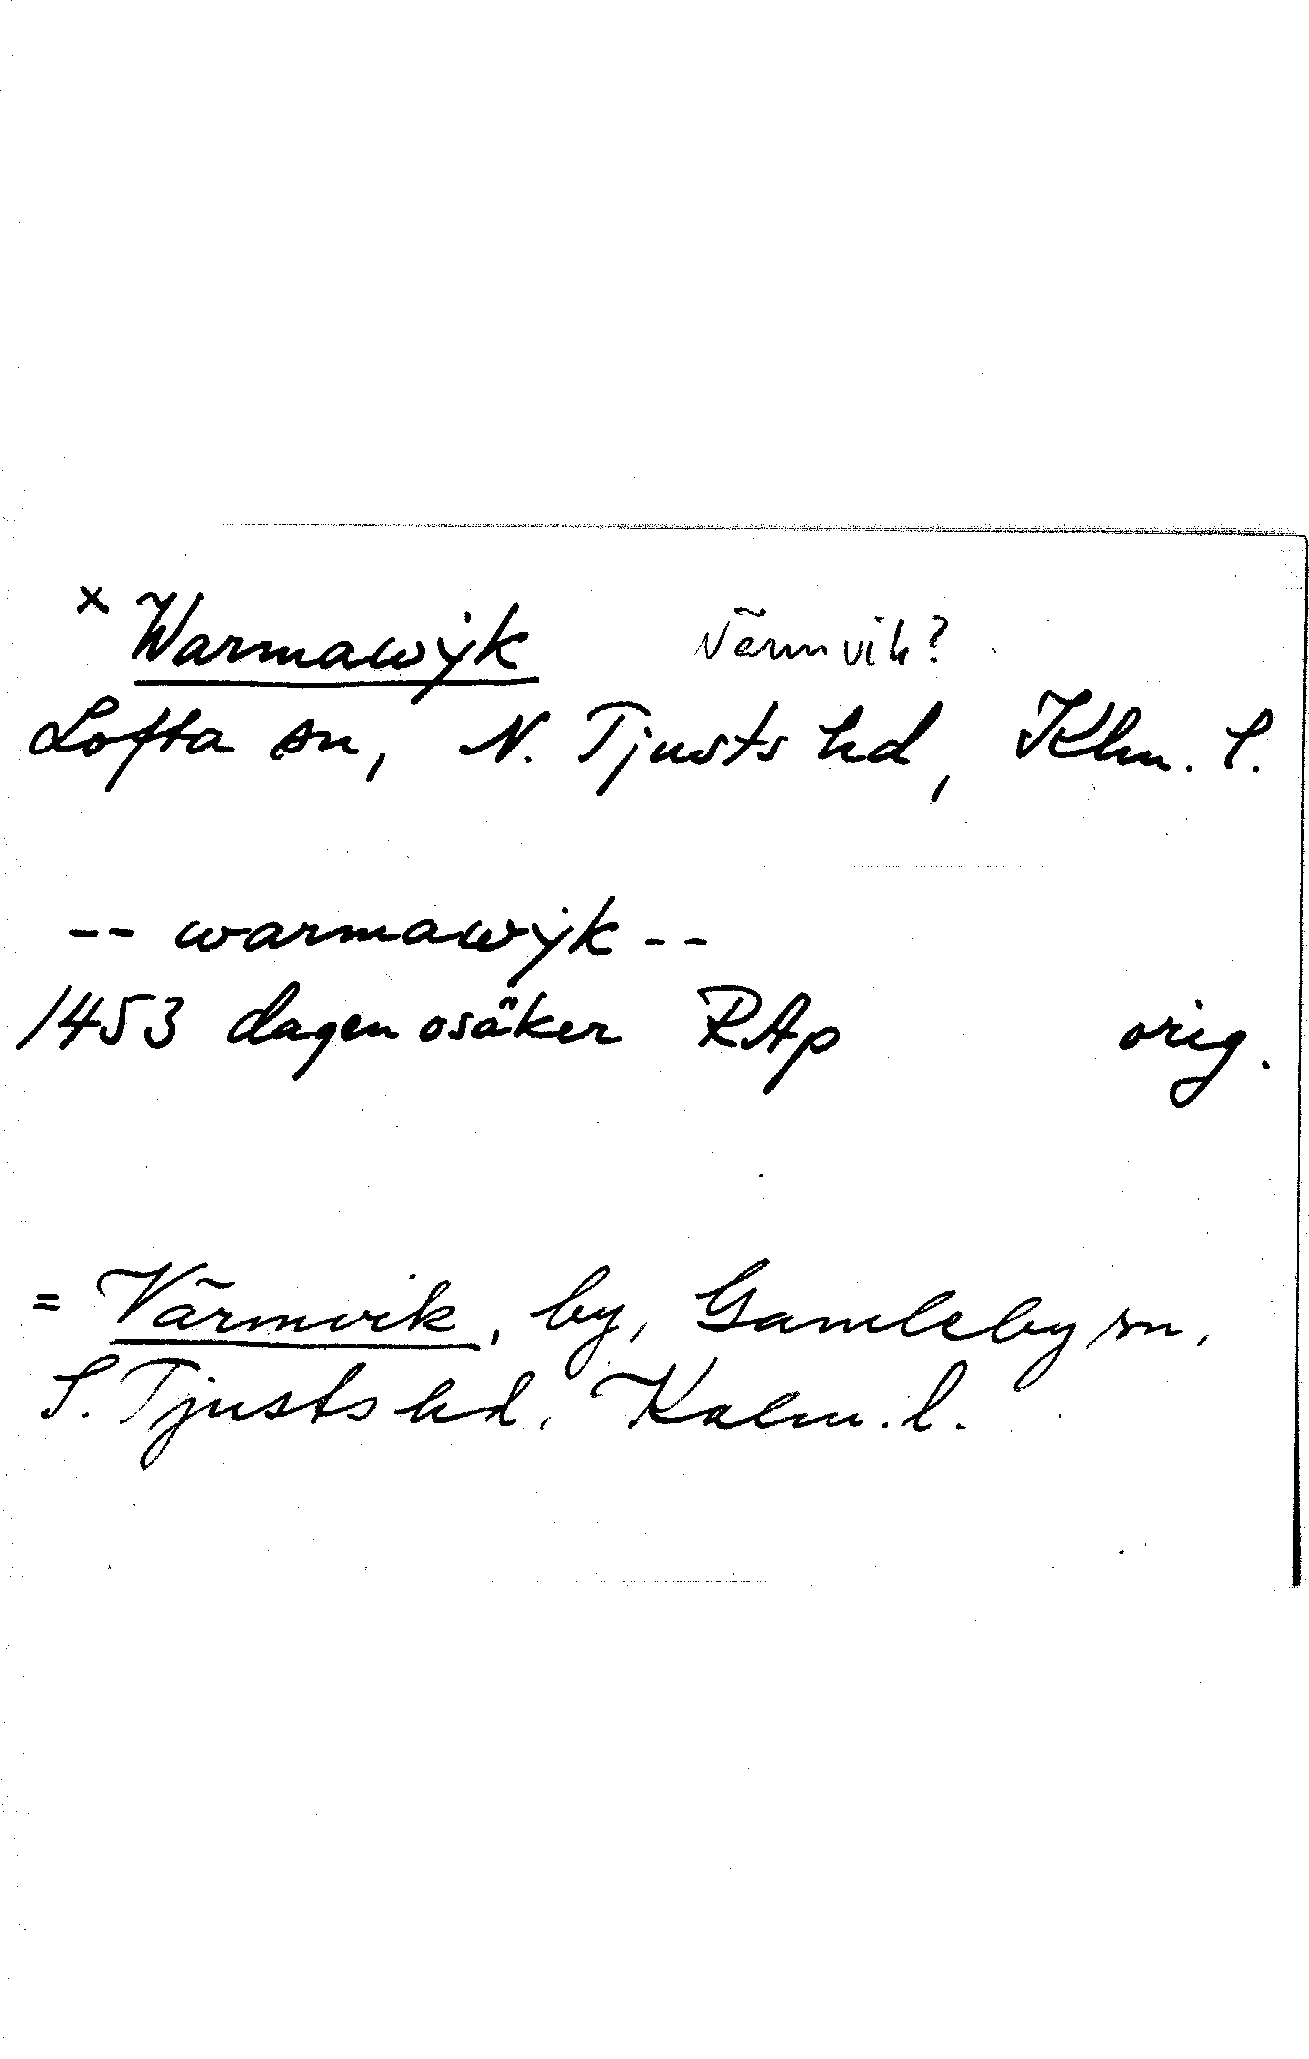 x Warmawÿk Värmvik?
Lofta sn, N. Tjusts hd, Klm. l.
-- warmawÿk --
1453 dagen osäker RAp orig.
= Värmvik, by, Gamleby sn,
S. Tjusts hd, Kalm. l.